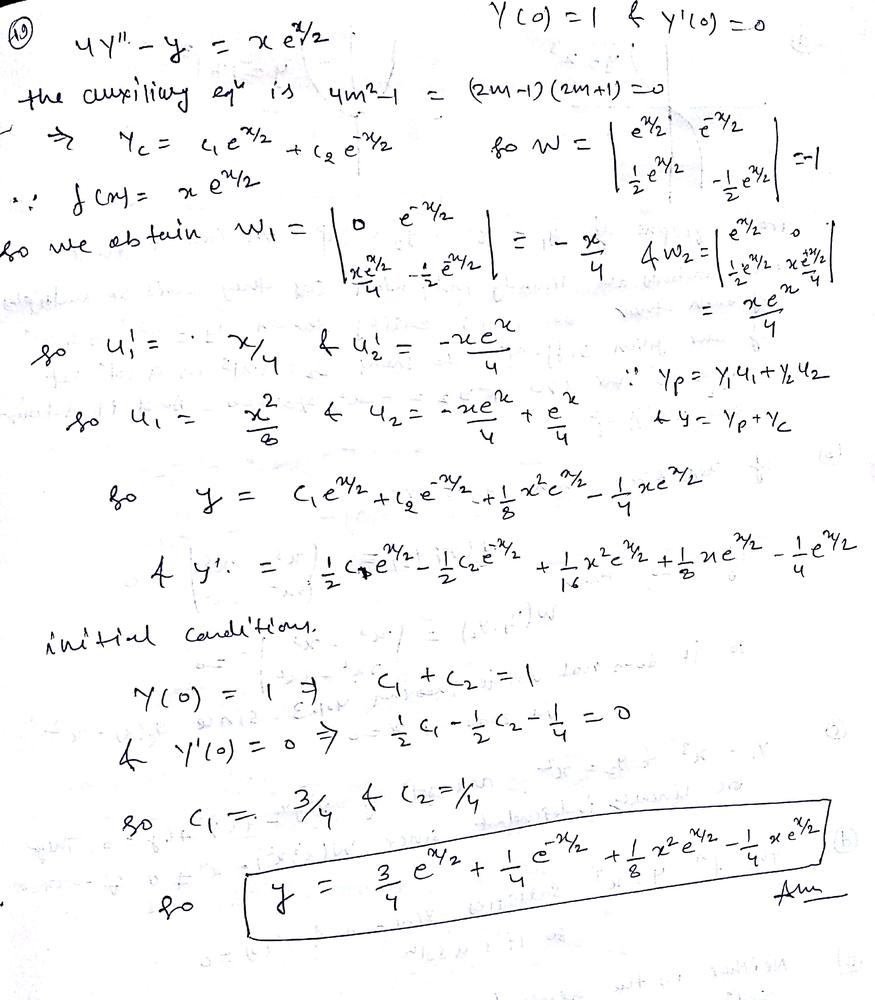 (19) 4y'' - y = x e^{x/2}. Y(0) = 1 & Y'(0) = 0
the auxiliary eqⁿ is 4m²-1 = (2m-1)(2m+1) = 0
⇒ Y_c = c₁ e^{x/2} + c₂ e^{-x/2} so W = | e^{x/2} e^{-x/2} ; ½ e^{x/2} -½ e^{-x/2} | = -1
∵ f(x) = x e^{x/2}
so we obtain W₁ = | 0 e^{-x/2} ; xe^{x/2}/4 -½ e^{-x/2} | = - x/4 & W₂ = | e^{x/2} 0 ; ½ e^{x/2} xe^{x/2}/4 |
= xe^x/4
so u₁' = x/4 & u₂' = -xe^x/4
∵ y_p = y₁u₁ + y₂u₂
so u₁ = x²/8 & u₂ = -xe^x/4 + e^x/4 & y = y_p + y_c
so y = c₁ e^{x/2} + c₂ e^{-x/2} + 1/8 x² e^{x/2} - 1/4 x e^{x/2}
& y'. = ½ c₁ e^{x/2} - ½ c₂ e^{-x/2} + 1/16 x² e^{x/2} + 1/8 x e^{x/2} - 1/4 e^{x/2}
initial conditions.
Y(0) = 1 ⇒ c₁ + c₂ = 1
& Y'(0) = 0 ⇒ ½ c₁ - ½ c₂ - ¼ = 0
so c₁ = 3/4 & c₂ = 1/4
so y = 3/4 e^{x/2} + 1/4 e^{-x/2} + 1/8 x² e^{x/2} - 1/4 x e^{x/2}
Ans